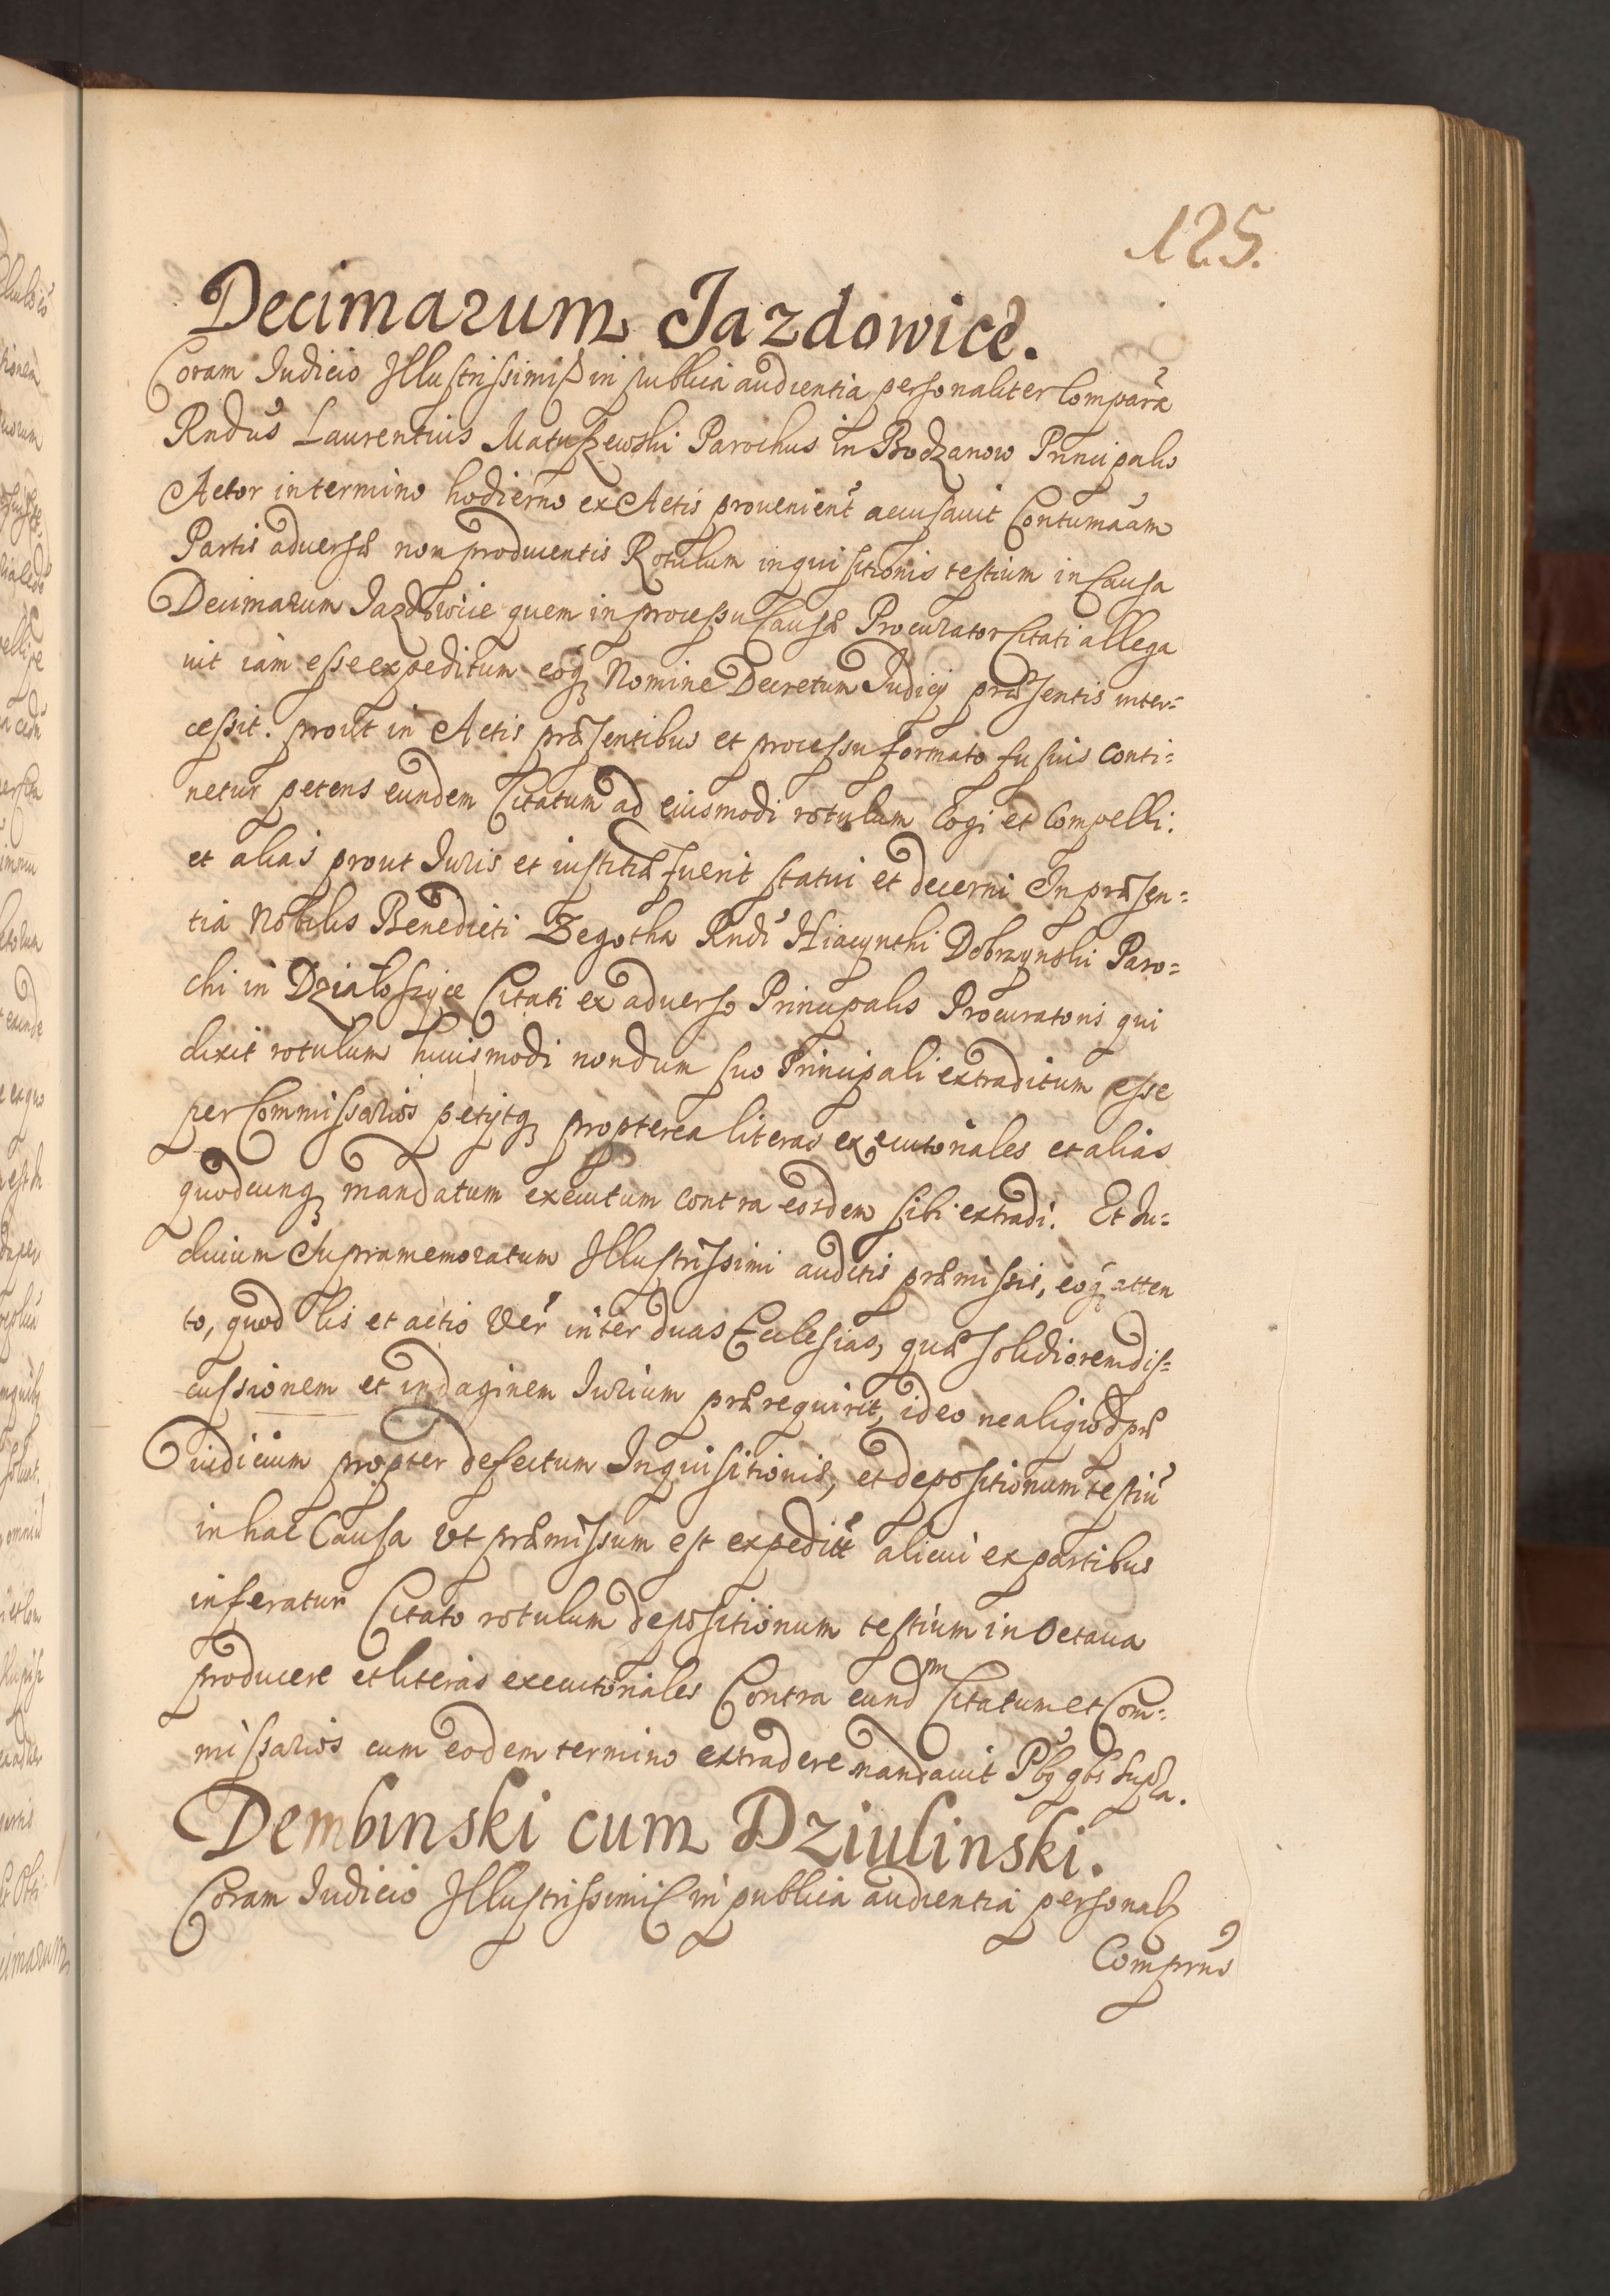 125.
Decimarum Jazdowice.
Coram Judicio Jllustrissimis in publica audientia personaliter Comparẽ
Rndus Laurentius Matuszewski Parochus in Bodzanow Principalis
Actor in termino hodierno ex Actis provenient accusauit Contumaciam
Partis aduersæ non producentis Rotulum inquisitionis testium in Causa
Decimarum Jazdowice quem in processu Causæ Procurator Citati allega
uit iam esse expeditum eoq Nomine Decretum Judicij præsentis inter=
cessit. prout in Actis præsentibus et processu formato fusius conti=
netur petens eundem Citatum ad eiusmodi rotulum Cogi et Compelli.
et alias prout Juris et iustitiæ fuerit statui et decerni Jn præsen=
tia Nobilis Benedicti Zegotha Rndi Hiacynthi Dobrzynski Paro=
chi in Działoszyce Citati ex aduerso Principalis Procuratoris qui
dixit rotulum huiusmodi nondum suo Principali extraditum esse
per Commissarios petijtq propterea literas executoriales et alias
quodcunq mandatum executum contra eosdem sibi extradi. Et Ju=
dicium Supramemoratum Jllustrissimi auditis præmissis, eoq atten
to, quod lis et actio Ver inter duas Ecclesias, quæ solidiorem dis=
cussionem et indaginem Jurium prærequirit, ideo ne aliquod præ
iudicium propter defectum Inquisitionis, et depositionum testiũ
in hac Causa vt præmissum est expedit alicui ex partibus
inferatur Citato rotulum depositionum testium in Octaua
producere et literas executoriales Contra eundm Citatum et Com=
missarios cum eodem termino extradere mandauit Pbq qbs supza.
Dembinski cum Dziulinski.
Coram Judicio Jllustrissimi in publica audientia personalz
Comprus